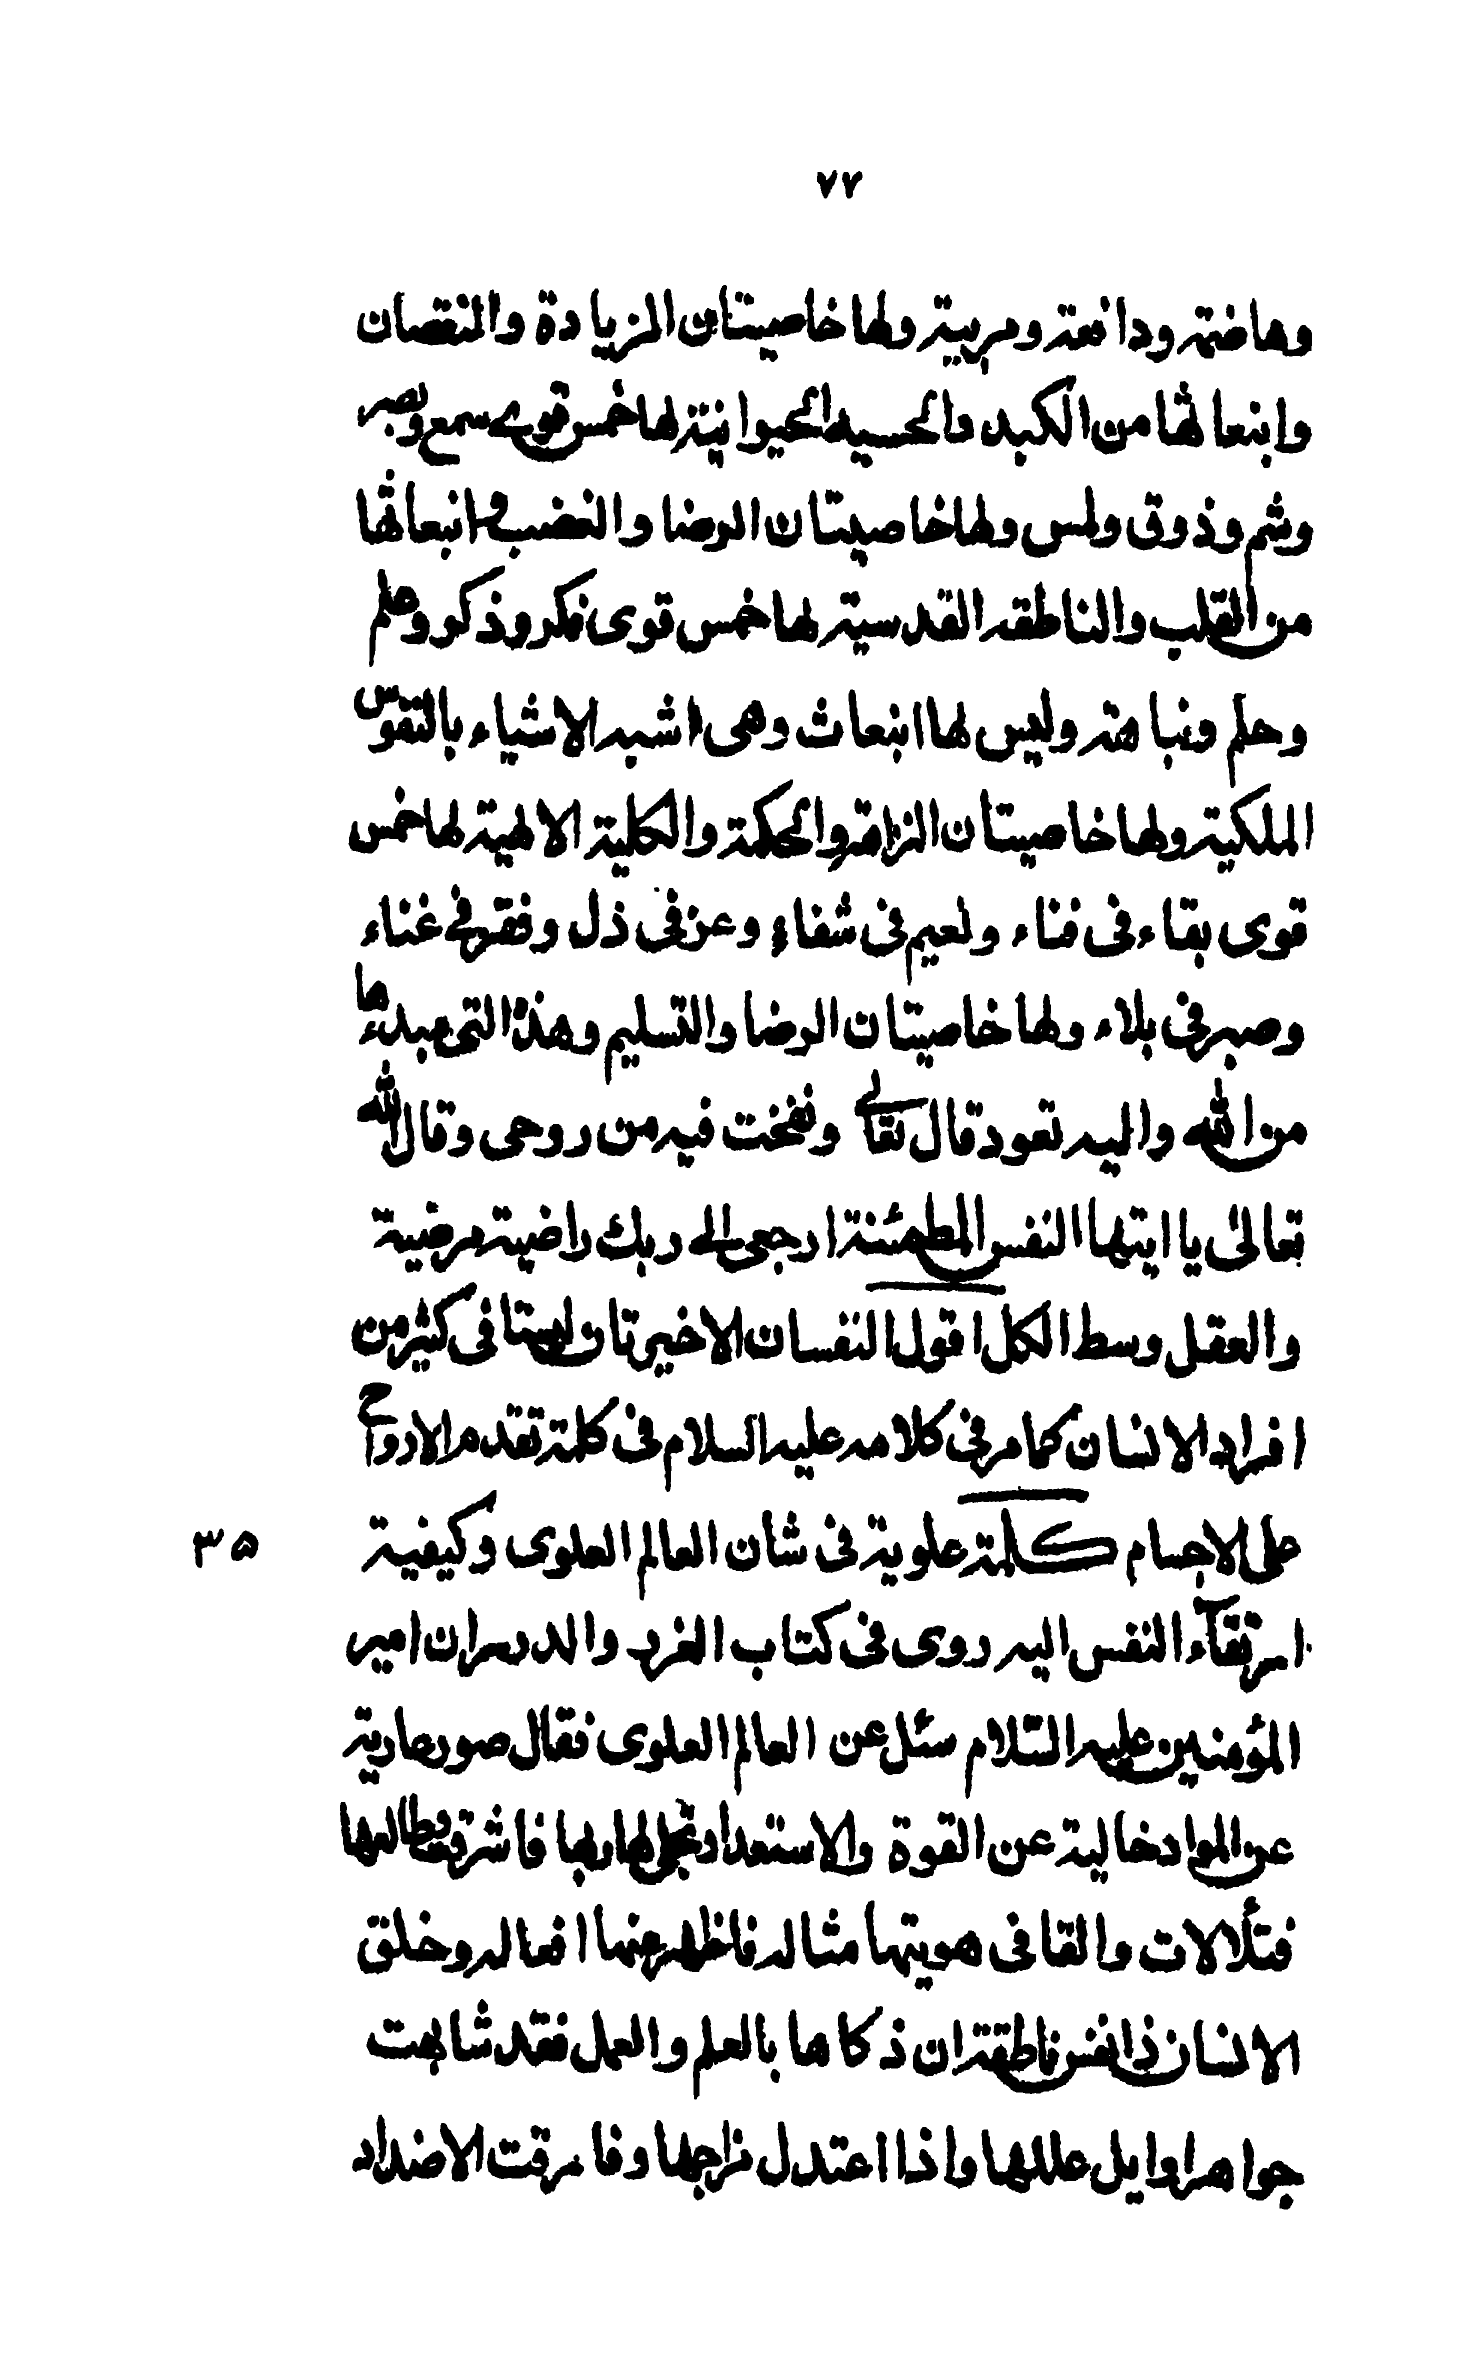 ٧٧
وهاضمة ودافعة ومربية ولها خاصيتان الزيادة والنقصان
وانبعاثها من الكبد والحسيه الحيوانية لها خمس قوى سمع وبصر
وشم وذوق ولمس ولها خاصيتان الرضا والغضب وانبعاثها
من القلب والناطقه القدسية لها خمس قوى فكر وذكر وعلم
وحلم ونباهة وليس لها انبعاث وهى اشبه الاشياء بالنفوس
الملكية ولها خاصيتان النزاهة والحكمة والكلية الالهية لها خمس
قوى بقاء فى فناء ونعيم فى شفاء وعز فى ذل وفقر فى غناء
وصبر فى بلاء ولها خاصيتان الرضا والتسليم وهذه التى مبدءها
من الله واليه تعود قال تعالى ونفخت فيه من روحى وقال الله
تعالى يا ايتها النفس المطمئنة ارجعى الى ربك راضية مرضية
والعقل وسط الكل اقول النفسان الاخيرتان ليستا فى كثير من
افراد الانسان كما مر فى كلامه عليه السلام فى كلمة تقدم الارواح
على الاجسام كلمة علوية فى شان العالم العلوى وكيفية
٣٥
ارتقآء النفس اليه روى فى كتاب الغرر والدرر ان امير
المؤمنين عليه السّلام سئل عن العالم العلوى فقال صور عارية
عن المواد خالية عن القوة والاستعداد تجلى لها ربها فاشرقت وطالعها
فتلألات والقا فى هويتها مثاله فاظهر عنها افعاله وخلق
الانسان ذا نفس ناطقة ان ذكاها بالعلم والعمل فقد شابهت
جواهر اوايل عللها واذا اعتدل مزاجها وفارقت الاضداد